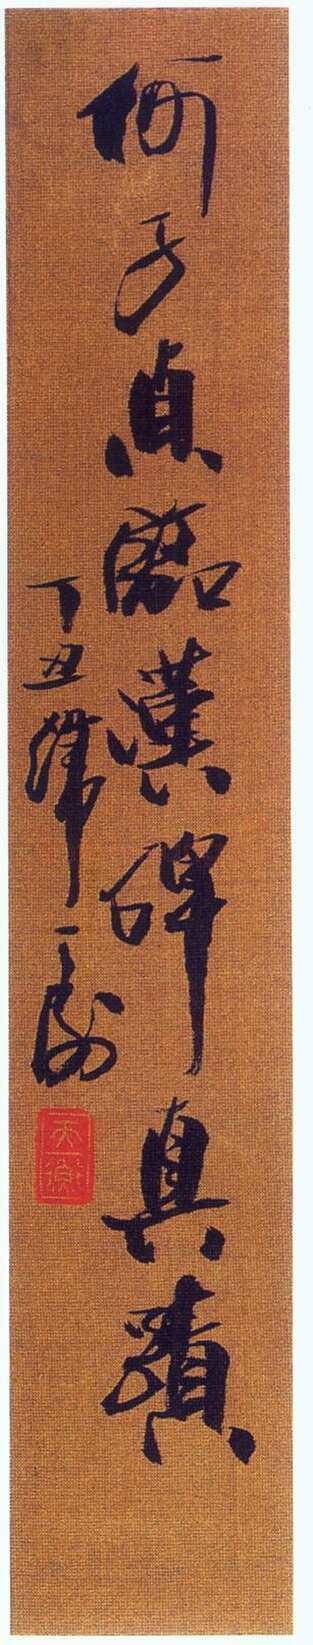 何子貞臨漢碑真蹟
丁丑韓天衡
天衡